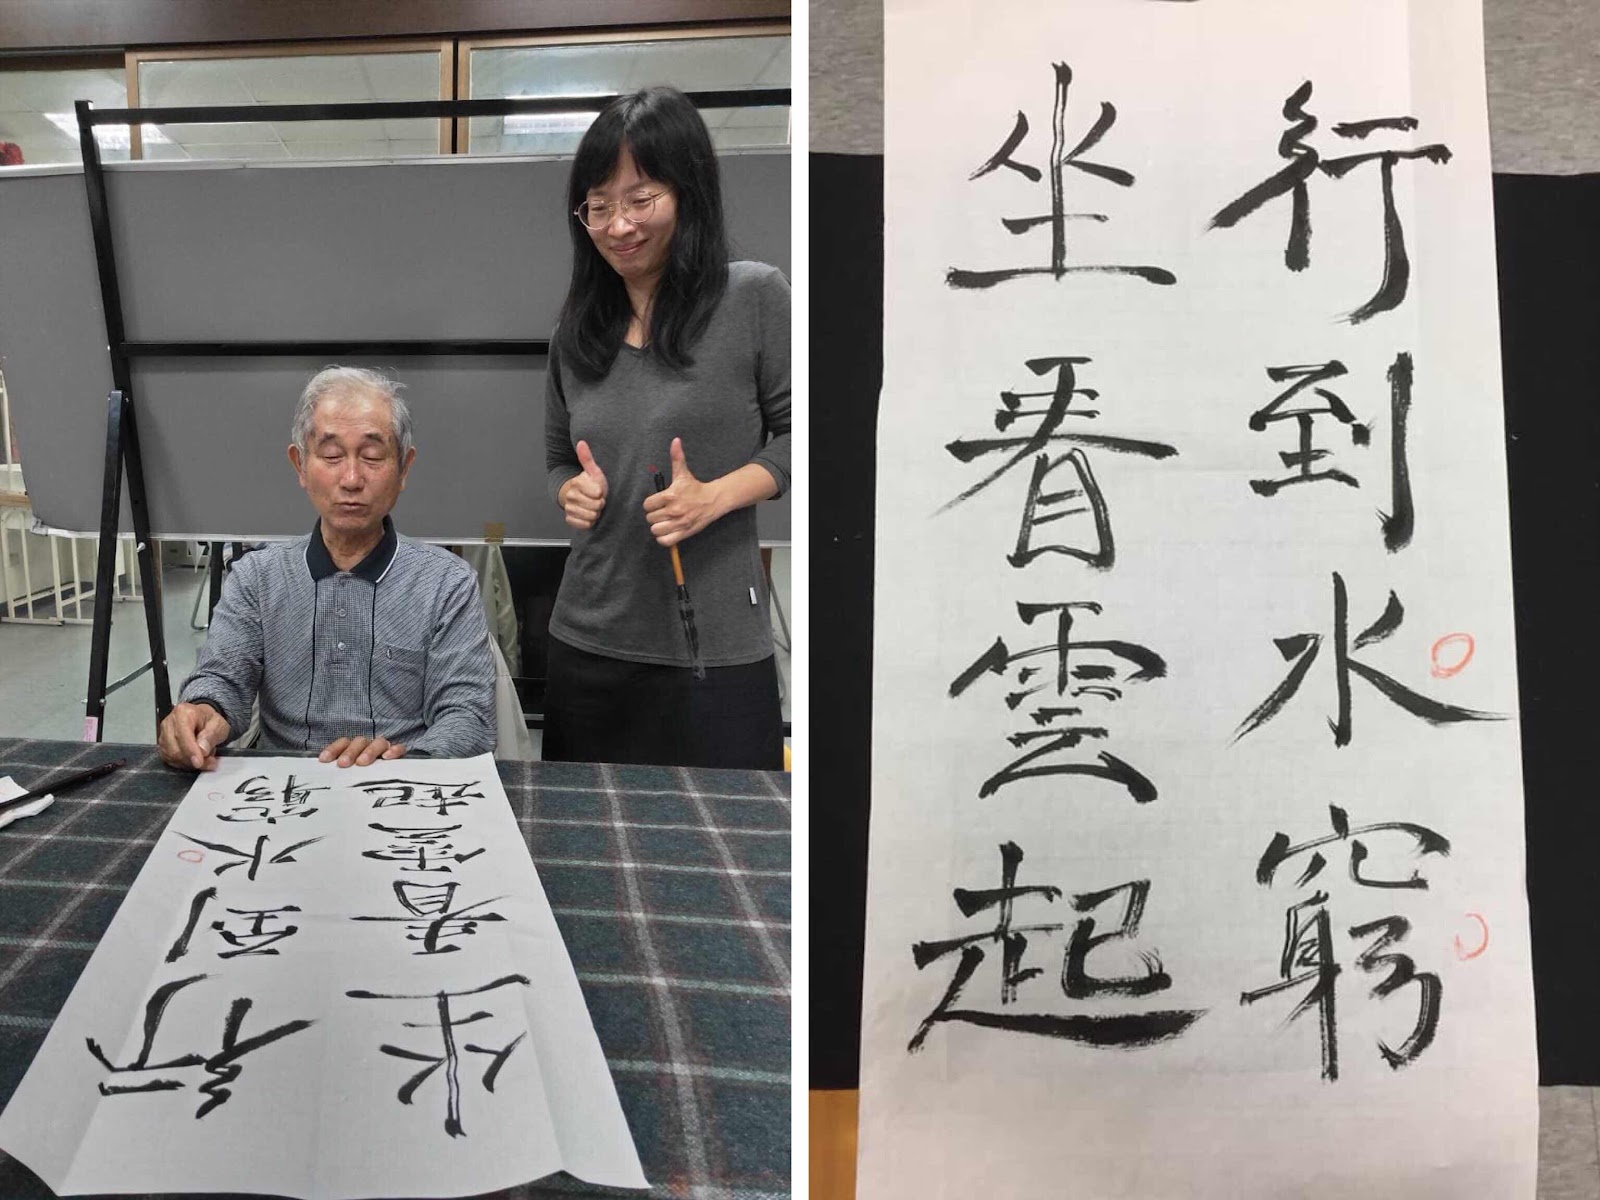 行到水窮
坐看雲起
行到水窮
坐看雲起